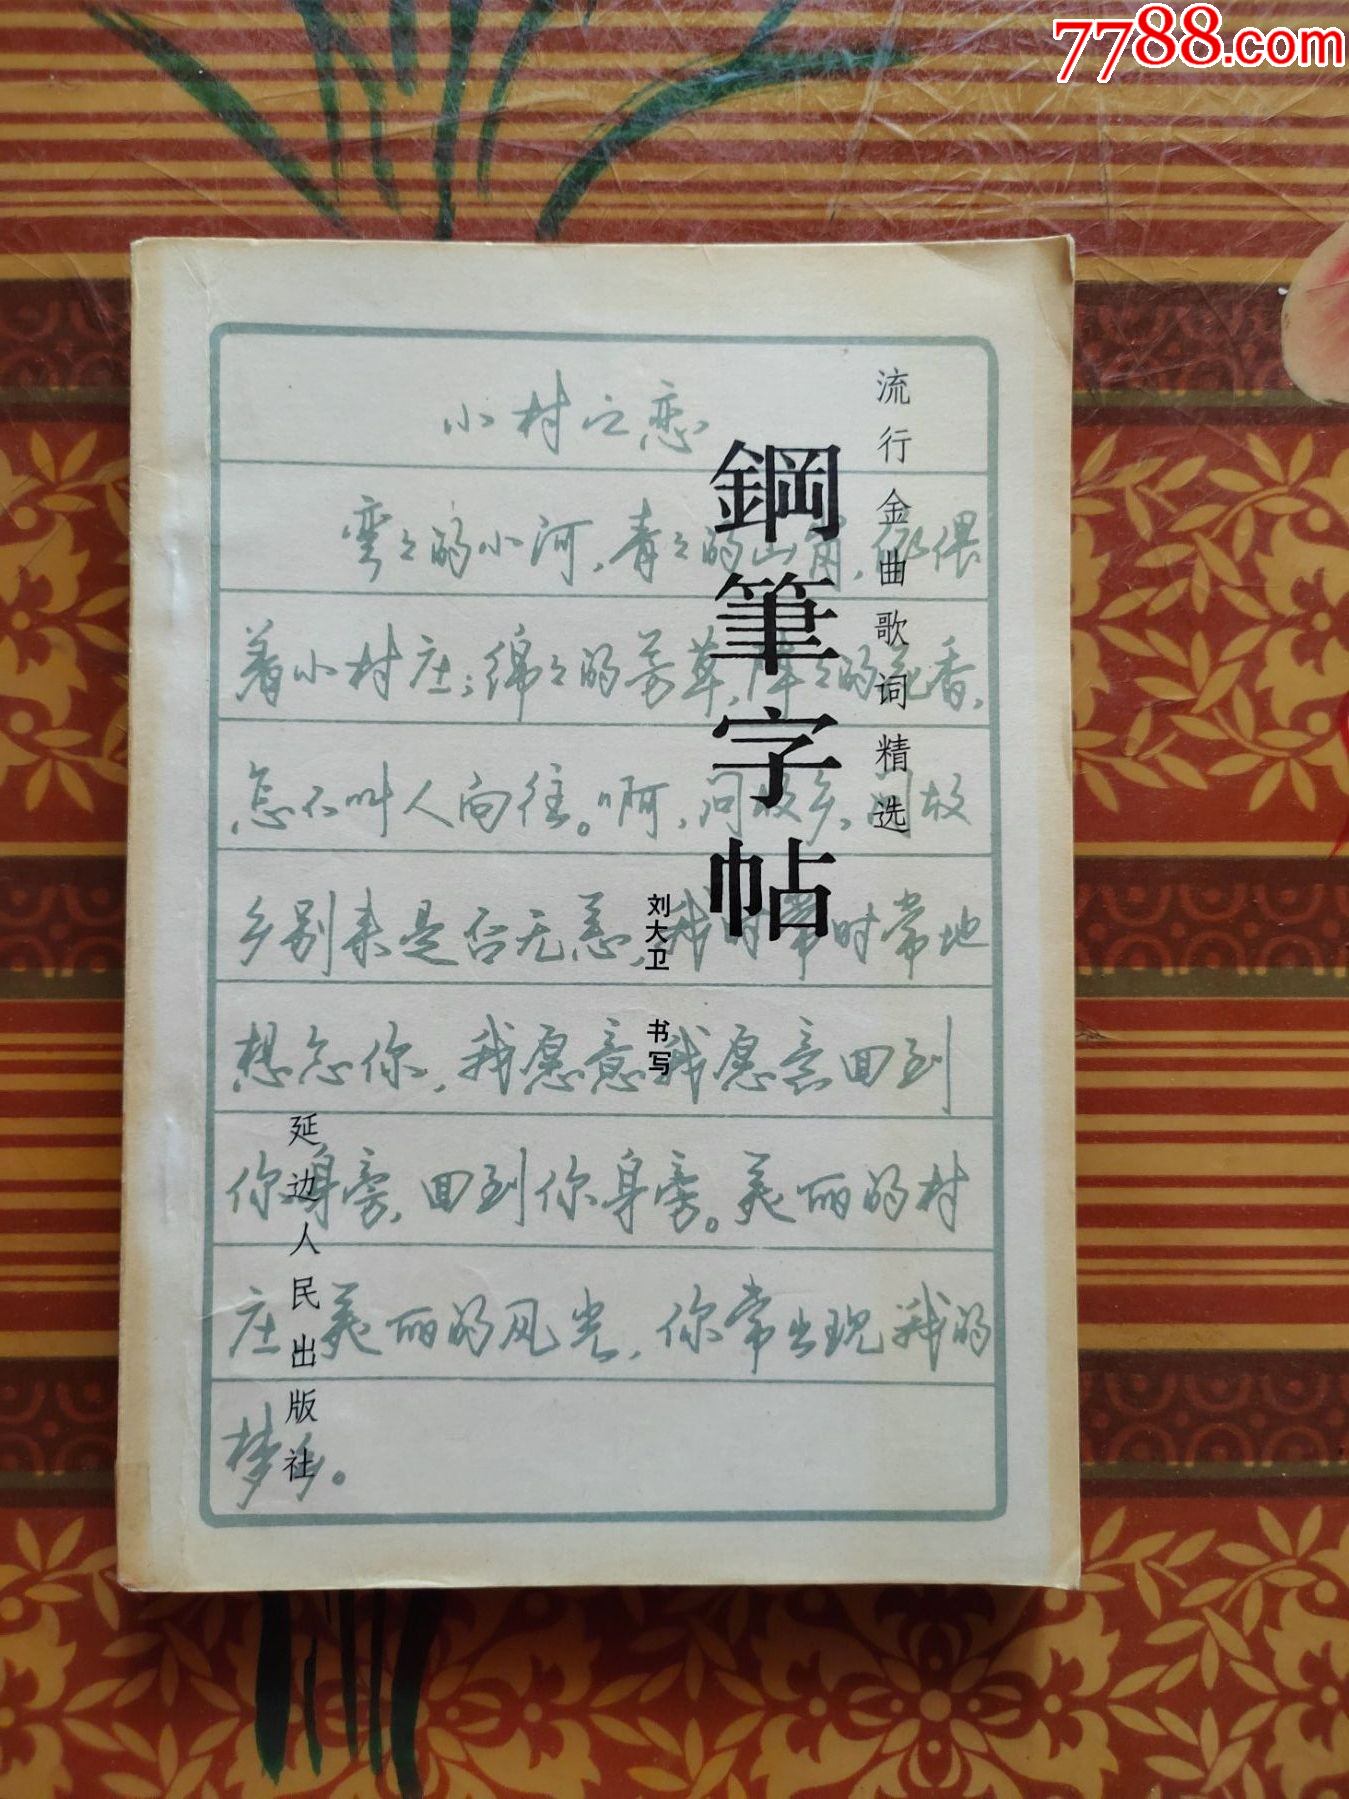 7788.com
流行金曲歌词精选
鋼筆字帖
刘大卫 书写
延边人民出版社
小村之恋
弯々的小河,青々的山岗,依偎
着小村庄;绵々的芳草,阵々的花香,
怎不叫人向往。啊,问故乡,问故
乡别来是否无恙,我时常时常地
想念你,我愿意我愿意回到
你身旁,回到你身旁。美丽的村
庄美丽的风光,你常出现我的
梦乡。